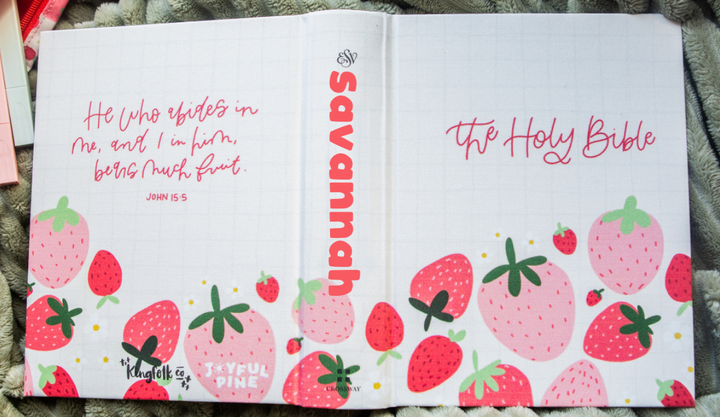 He who abides in
me, and I in him,
bears much fruit.
JOHN 15:5
Kingfolk co
JOYFUL
PINE
ESV
savannah
CROSSWAY
the Holy Bible